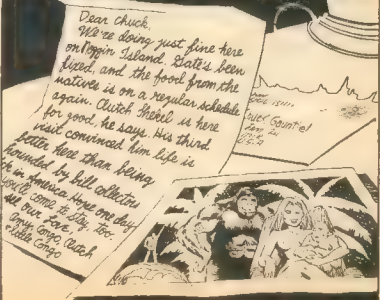 Dear Chuck,
We're doing just fine here
on Poggin Island. Gate's been
fixed, and the food from the
natives is on a regular schedule
again. Clutch Shekel is here
for good, he says. His third
visit convinced him life is
better here than being
hounded by bill collectors
in America. Hope one day
you'll come to stay, too.
all our love,
Amy, Congo, Clutch
+ Little Congo